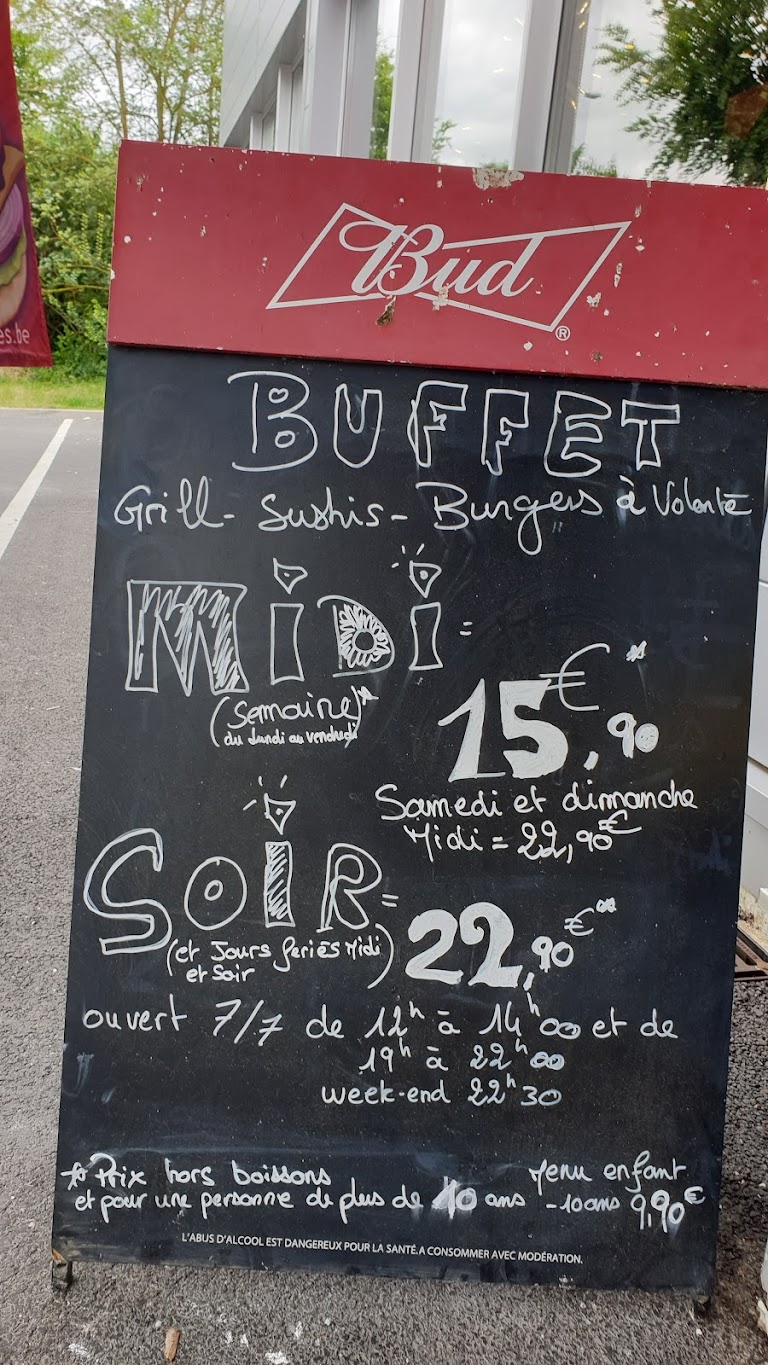 es.be
Bud
®
BUFFET
Grill - Sushis - Burgers à Volonté
MiDi =
(Semaine)*
du Lundi au vendredi
15,90€*
Samedi et dimanche
Midi = 22,90€
SOiR =
(et Jours feriés Midi
et Soir)
22,90€*
ouvert 7/7 de 12h à 14h00 et de
19h à 22h00
week-end 22h30
* Prix hors boissons
et pour une personne de plus de 10 ans
Menu enfant
-10ans 9,90€
L'ABUS D'ALCOOL EST DANGEREUX POUR LA SANTÉ. A CONSOMMER AVEC MODÉRATION.